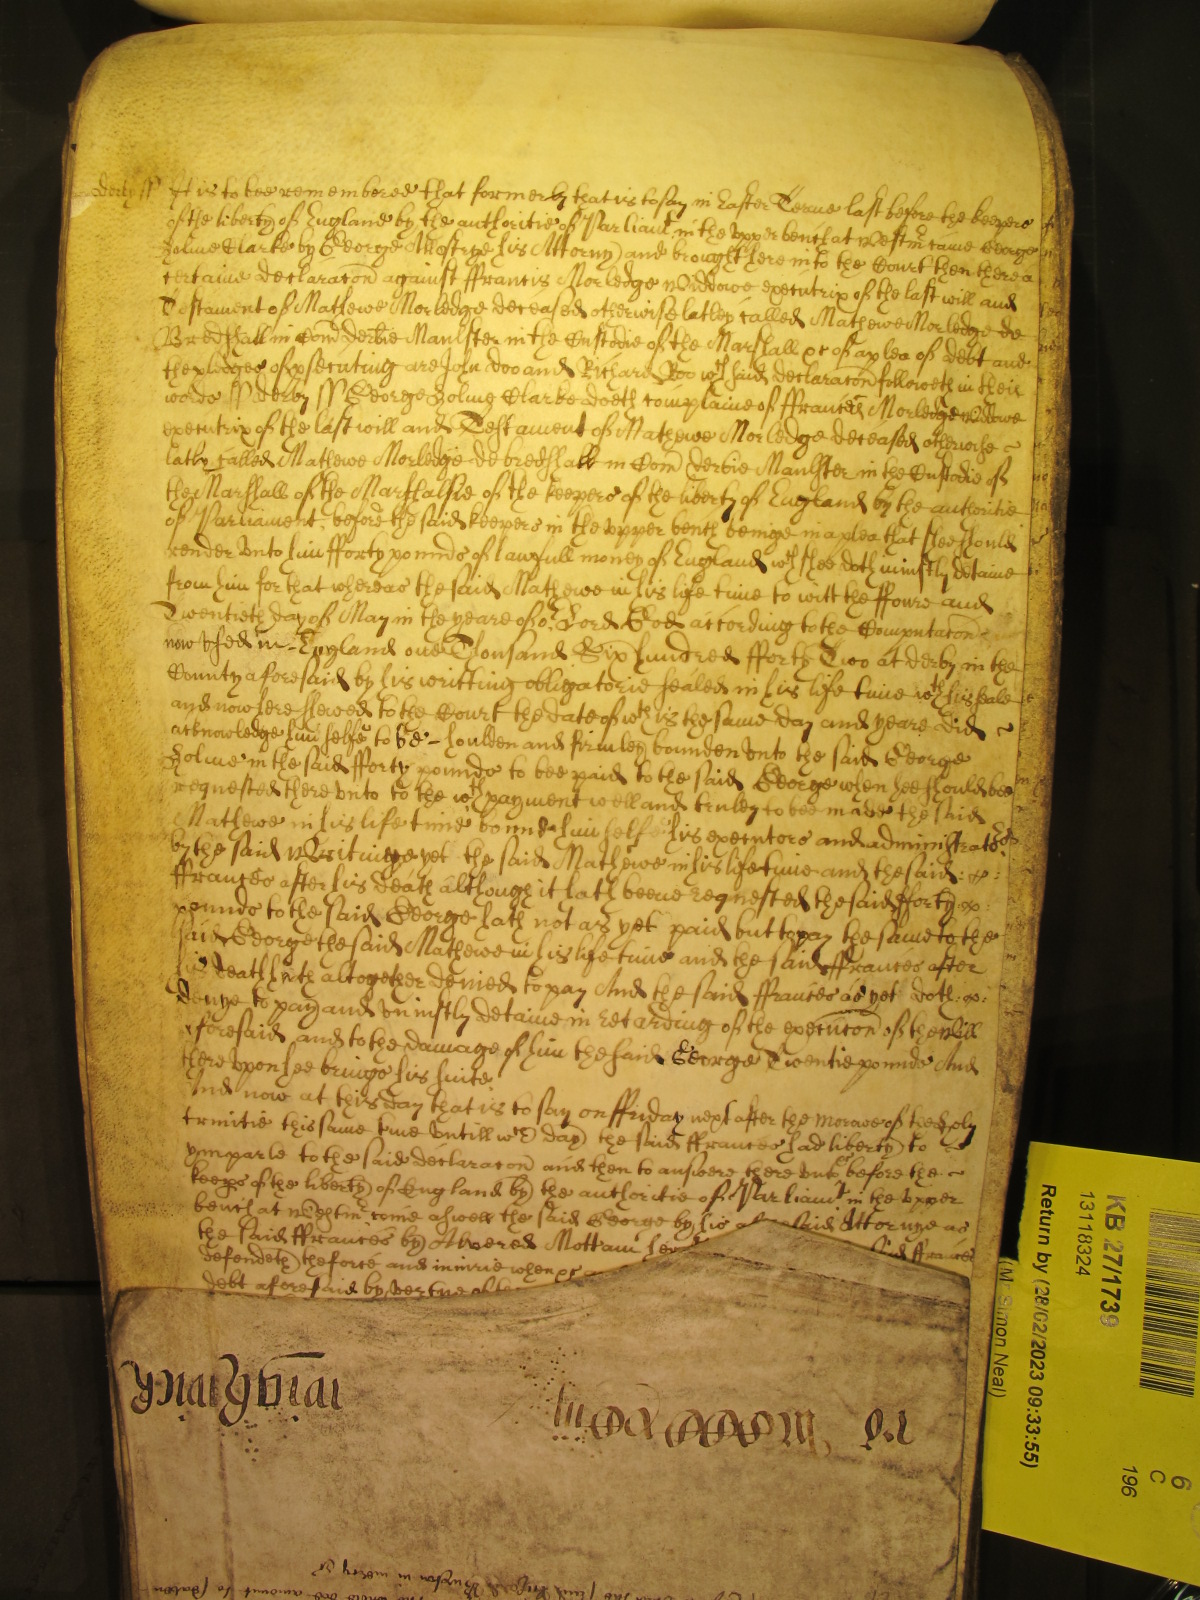 derby ss It is to bee remembered that formerly that is to say in Easter Terme last before the keepers
of the liberty of England by the authoritie of Parliamt in the upper bench at Westmr came George
Holme Clarke by George Allestrye his Attorny and brought here into the Court then there a
certaine declaracon against ffrancis Morledge Widdowe executrix of the last will and
Testament of Mathewe Morledge deceased otherwise latley called Mathewe Morledge de
Bredsall in Com derbie Maulster in the Custodie of the Marshall &c of a plea of debt and
the pledges of psecuting are John doo and Richard Roo wch said declaracon followeth in their
words ss derby ss George Holme Clarke doeth complaine of ffrancis Morledge Widdowe
executrix of the last will and Testament of Mathewe Morledge deceased otherwise
latly called Mathewe Morledge de bredsall in Com derbie Maulster in the Custodie of
the Marshall of the Marshalsie of the keepers of the liberty of England by the authoritie
of Parliament before the said keepers in the upper bench beinge in a plea that shee should
render unto him fforty pounds of lawfull money of England wch shee doth uniustly detaine
from him for that whereas the said Mathewe in his life time to witt the ffoure and
Twentieth day of May in the yeare of or Lord God according to the Computacon
now used in England one Thousand Six hundred fforty Two at derby in the
County aforesaid by his writting obligatorie sealed in his life time wth his seale
and now here shewed to the Court the date of wch is the same day and yeare did
acknowledge him selfe to be houlden and firmley bounden unto the said George
Holme in the said fforty pounds to bee paid to the said George when hee should bee
requested there unto to the wch payment well and truley to bee made the said
Mathewe in his life time bound him selfe his executors and administrators
by the said Writinge yet the said Mathewe in his life time and the said
ffrances after his death although it hath beene requested the said fforty
pounds to the said George hath not as yet paid but to pay the same to the
said George the said Mathewe in his life time and the said ffrances after
his death hath altogether denied to pay And the said ffrances as yet doth
denye to pay and uniustly detaine in retarding of the execucon of the Will
aforesaid and to the damage of him the said George Twentie pounds And
there upon hee bringe his suite
And now at this day that is to say on ffriday next after the morrow of the holy
trinitie this same time untill wch day the said ffrances had liberty to
ymparle to the said declaracon and then to answere there unto before the
keeps of the liberty of England by the authoritie of Parliamt in the upper
bench at Westmr come aswell the said George by his Attornye as
the said ffrances by Mottam ffrances
defendeth the force and iniurie when &c
debt aforesaid by vertue of the
KB 27/1739
13118324
Return by (28/02/2023 09:33:55)
(Mr Simon Neal)
6
C
196